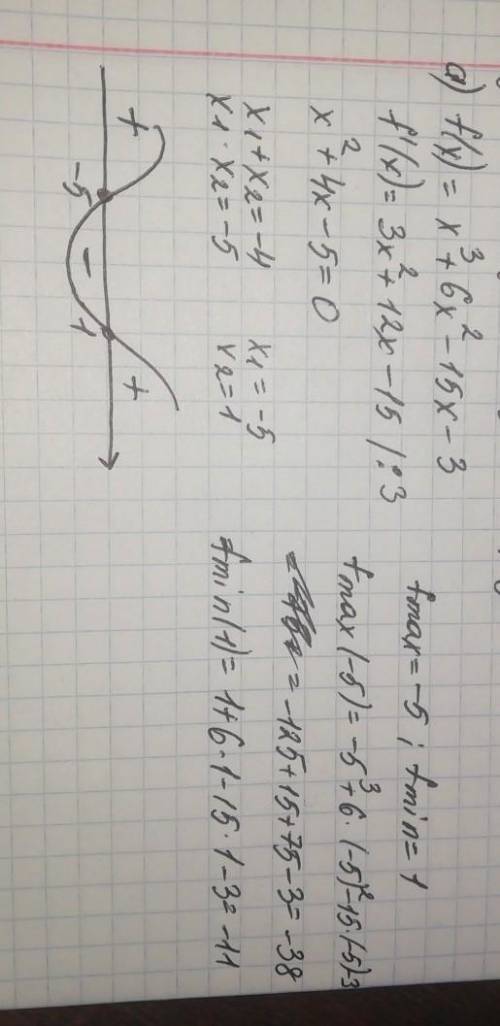 a) f(x) = x³ + 6x² - 15x - 3
f'(x) = 3x² + 12x - 15 / : 3
x² + 4x - 5 = 0
x1 + x2 = -4 x1 = -5
x1 · x2 = -5 x2 = 1
+ -5 - 1 +
fmax = -5 ; fmin = 1
fmax(-5) = -5³ + 6 · (-5)² - 15 · (-5) - 3
= -125 + 15 + 75 - 3 = -38
fmin(1) = 1 + 6 · 1 - 15 · 1 - 3 = -11